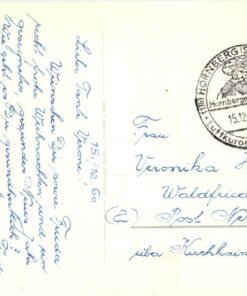 15.12.60
Liebe Tante Verone!
Wünschen Dir sowie Frieda
recht frohe Weihnachten und ein
gesegnetes, gesundes Neues Jahr.
Wie geht es Dir gesundheitlich?
HORNBERG
Hornberg
15.12
Luftkuror
Frau
Veronika
Waldfried
Post Ne
über Kirchhain